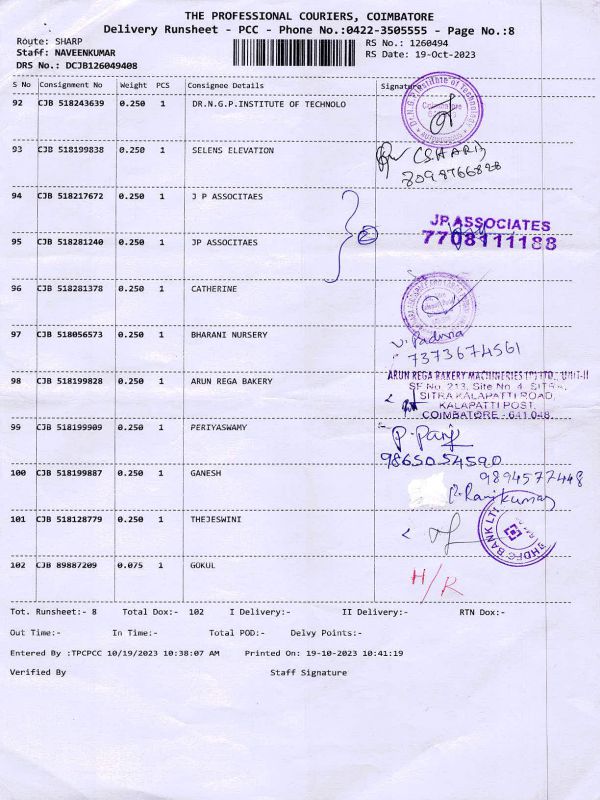 THE PROFESSIONAL COURIERS, COIMBATORE
Delivery Runsheet - PCC - Phone No.:0422-3505555 - Page No.:8
Route: SHARP RS No.: 1260494
Staff: NAVEENKUMAR RS Date: 19-Oct-2023
DRS No.: DCJB126049408
S No Consignment No Weight PCS Consignee Details Signature
92 CJB 518243639 0.250 1 DR.N.G.P.INSTITUTE OF TECHNOLO
Dr.N.G.P. Institute of Technology
Coimbatore
93 CJB 518199838 0.250 1 SELENS ELEVATION
(S.HARI)
8098766828
94 CJB 518217672 0.250 1 J P ASSOCITAES
JP ASSOCIATES
7708111188
95 CJB 518281240 0.250 1 JP ASSOCITAES
2
96 CJB 518281378 0.250 1 CATHERINE
97 CJB 518056573 0.250 1 BHARANI NURSERY
V. Padma
7373674561
98 CJB 518199828 0.250 1 ARUN REGA BAKERY
ARUN REGA BAKERY MACHINERIES (P) LTD., UNIT-II
SF No. 213, Site No. 4, SITRA,
SITRA KALAPATTI ROAD,
KALAPATTI POST,
COIMBATORE - 641 048.
99 CJB 518199909 0.250 1 PERIYASWAMY
9865054590
100 CJB 518199887 0.250 1 GANESH
9894577448
R. Rajkumar
101 CJB 518128779 0.250 1 THEJESWINI
HDFC BANK LTD
102 CJB 89887209 0.075 1 GOKUL
H/R
Tot. Runsheet:- 8 Total Dox:- 102 I Delivery:- II Delivery:- RTN Dox:-
Out Time:- In Time:- Total POD:- Delvy Points:-
Entered By :TPCPCC 10/19/2023 10:38:07 AM Printed On: 19-10-2023 10:41:19
Verified By Staff Signature